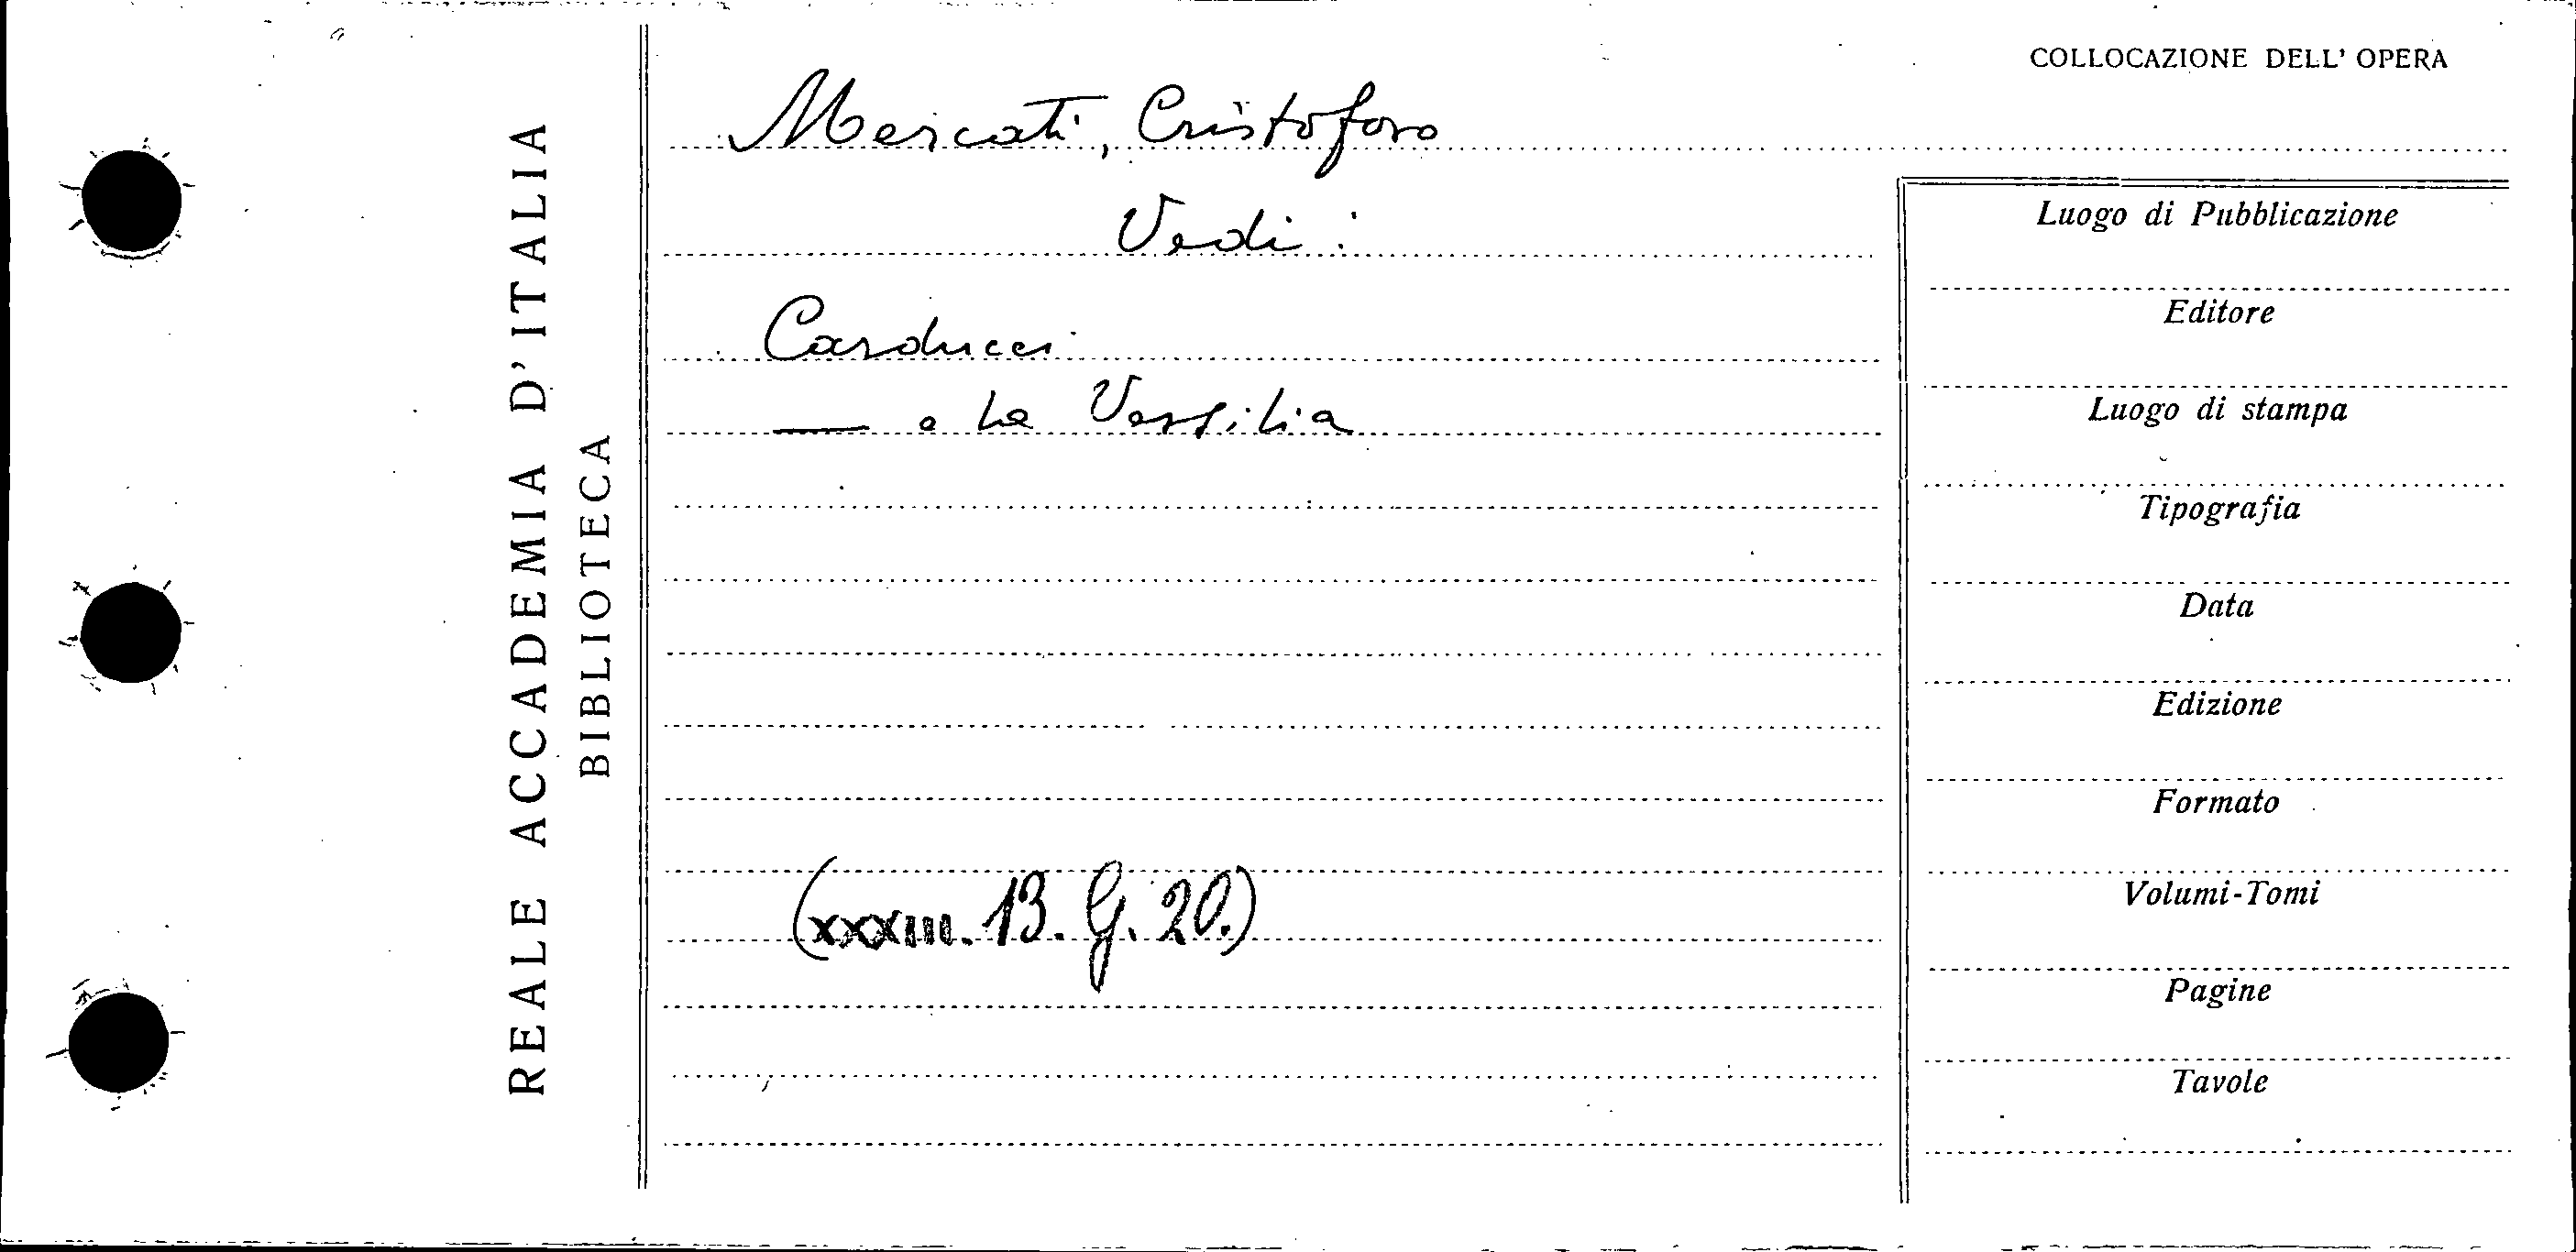 REALE ACCADEMIA D'ITALIA
BIBLIOTECA
COLLOCAZIONE DELL' OPERA
Mercati, Cristoforo
Vedi:
Carducci
— e la Versilia
(XXXIII. 13. G. 20.)
Luogo di Pubblicazione
Editore
Luogo di stampa
Tipografia
Data
Edizione
Formato
Volumi-Tomi
Pagine
Tavole